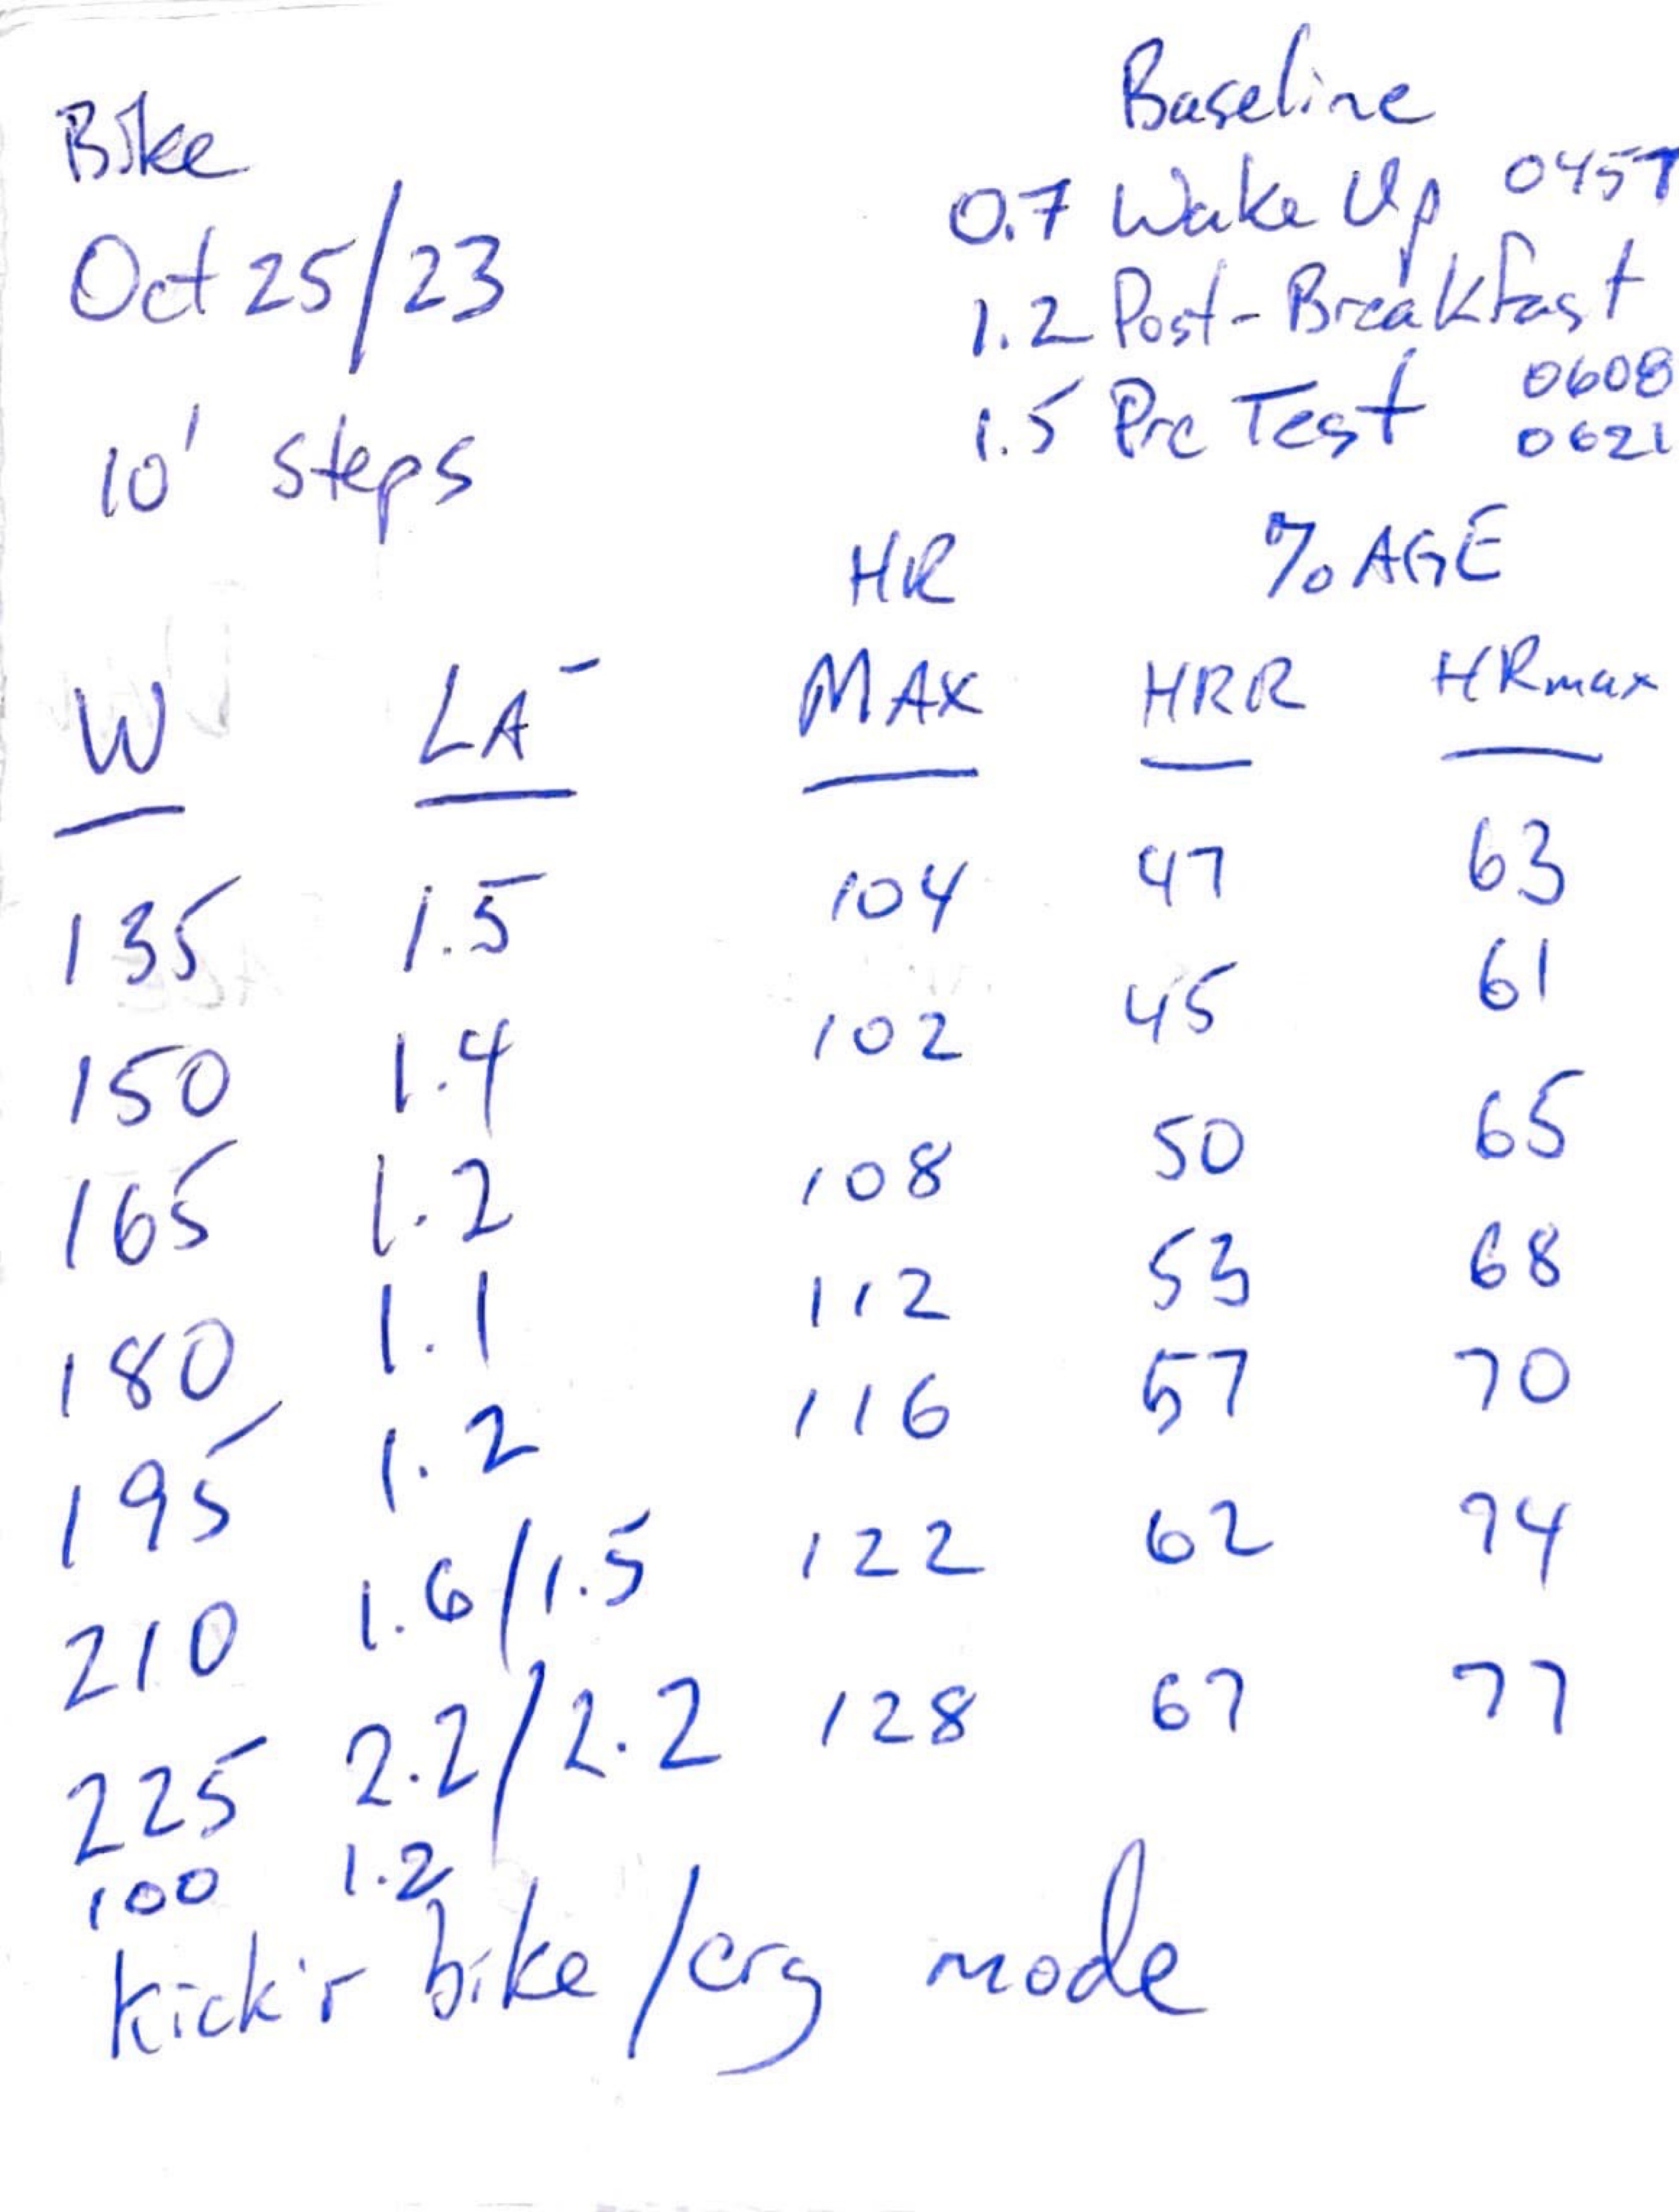 Bike
Oct 25/23
10' steps
Baseline
0.7 Wake Up 0457
1.2 Post-Breakfast
0608
1.5 Pre Test 0621
HR %AGE
W LA⁻ MAX HRR HRmax
135 1.5 104 47 63
150 1.4 102 45 61
165 1.2 108 50 65
180 1.1 112 53 68
195 1.2 116 57 70
210 1.6/1.5 122 62 74
225 2.2/2.2 128 67 77
100 1.2
kick'r bike/erg mode